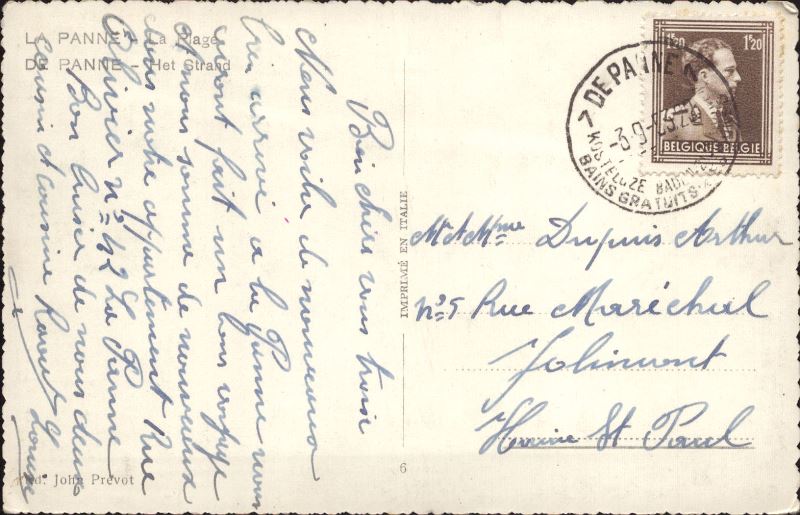 LA PANNE - La Plage
DE PANNE - Het Strand
Bien chère vous trois
Nous voila de nouveaux
bien arrivé a la Panne nous
avont fait un bons voyage
et nous somme de nouveaux
dans notre appartement Rue
Olivier n° 42 La Panne
Bon baisé de nous deux
cousin et cousine
Louise
Ed. John Prevot
IMPRIMÉ EN ITALIE
6
1F20 1F20
BELGIQUE-BELGIE
DE PANNE
-3-9-
KOSTELOZE BADEN
BAINS GRATUITS
Mr & Mme Dupuis Arthur
n° 5 Rue Maréchal
Jolimont
Haine St Paul